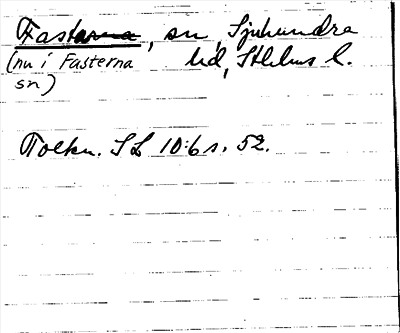 Fasterna, sn, Sjuhundra
(nu i Fasterna hd, Sthlms l.
sn)
Tolkn. SL 10:6 s. 52.